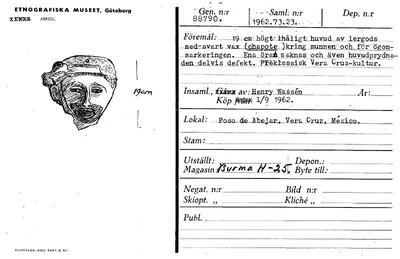 ETNOGRAFISKA MUSEET, Göteborg
AMRIOL.
19cm
Gen. n:r
88790.
Saml: n:r
1962.73.23.
Dep. n:r
Föremål: 19 cm högt ihåligt huvud av lergods
med svart vax (chapote) kring munnen och för ögon-
markeringen. Ena örat saknas och även huvudprydna-
den delvis defekt. Préklassisk Vera Cruz-kultur.
Insaml. av: Henry Wassén År:
Köp 1/9 1962.
Lokal: Poso de Abejar, Vera Cruz, México.
Stam:
Utställt: Depon.:
Magasin Burma H-25. Byte till:
Negat. n:r Bild n:r
Skiopt. „ Kliché „
Publ.